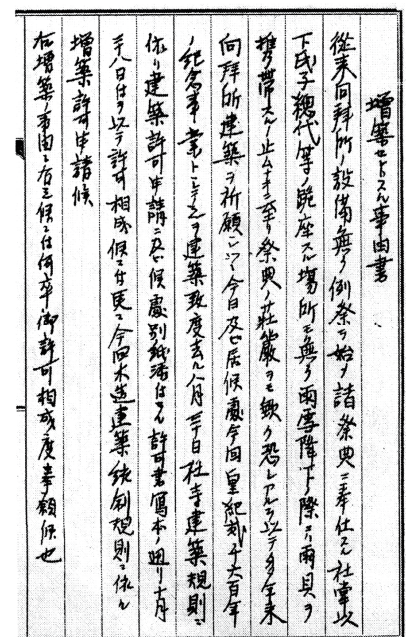 增築セントスル事由書
從来向拜所ノ設備無ク例祭ヲ始メ諸祭典ニ奉仕スル社掌以
下氏子總代等ノ跪座スル場所モ無ク雨雪降下ノ際ニハ雨具ヲ
携帶スルノ止ムナキニ至リ祭典ノ荘嚴ヲモ欠ク恐レアルヲ以テ多年来
向拜所建築ヲ祈願シツツ今日及ビ居候處今回皇紀貳千六百年
ノ紀念事業トシテ之ヲ建築致度去ル八月三十日社寺建築規則ニ
依リ建築許可申請ニ及ビ候處別紙添付セル許可書寫本ノ通リ十月
二十八日付ヲ以テ許可相成候ニ付更ニ今回木造建築統制規則ニ依ル
增築許可申請候
右增築ノ事由ニ有之候ニ付何卒御許可相成度奉願候也